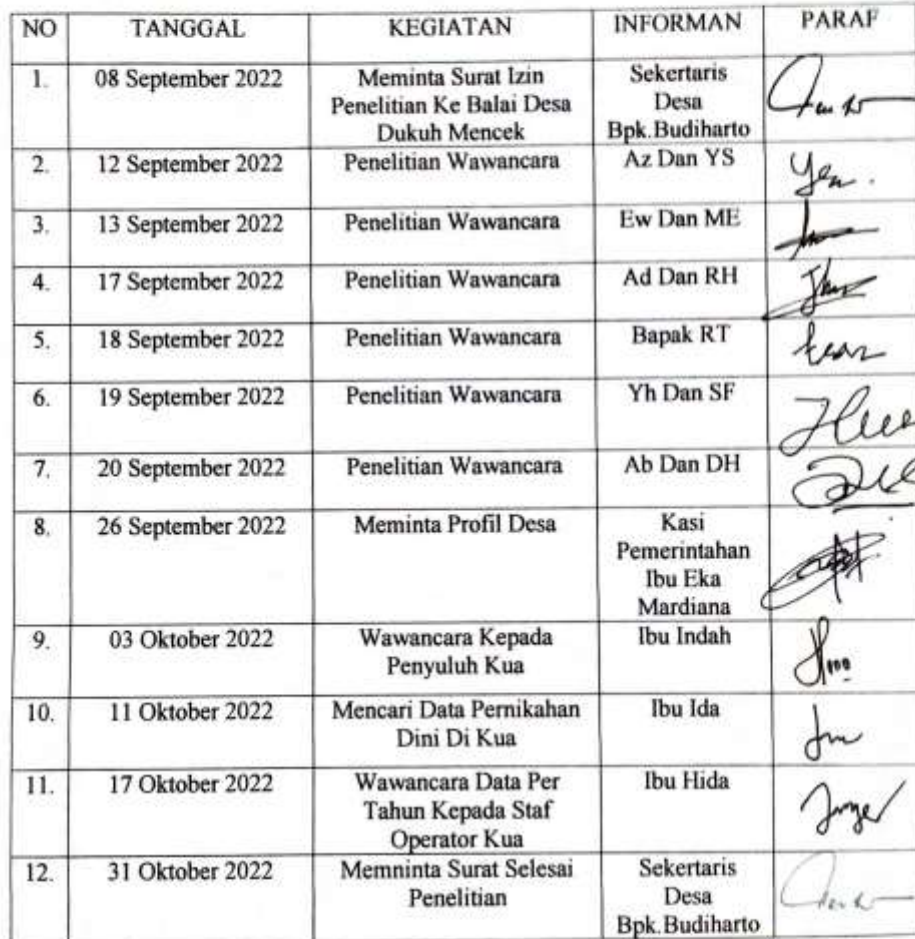 NO TANGGAL KEGIATAN INFORMAN PARAF
1. 08 September 2022 Meminta Surat Izin Sekertaris
Penelitian Ke Balai Desa Desa
Dukuh Mencek Bpk.Budiharto
2. 12 September 2022 Penelitian Wawancara Az Dan YS
3. 13 September 2022 Penelitian Wawancara Ew Dan ME
4. 17 September 2022 Penelitian Wawancara Ad Dan RH
5. 18 September 2022 Penelitian Wawancara Bapak RT
6. 19 September 2022 Penelitian Wawancara Yh Dan SF
7. 20 September 2022 Penelitian Wawancara Ab Dan DH
8. 26 September 2022 Meminta Profil Desa Kasi
Pemerintahan
Ibu Eka
Mardiana
9. 03 Oktober 2022 Wawancara Kepada Ibu Indah
Penyuluh Kua
10. 11 Oktober 2022 Mencari Data Pernikahan Ibu Ida
Dini Di Kua
11. 17 Oktober 2022 Wawancara Data Per Ibu Hida
Tahun Kepada Staf
Operator Kua
12. 31 Oktober 2022 Memninta Surat Selesai Sekertaris
Penelitian Desa
Bpk.Budiharto